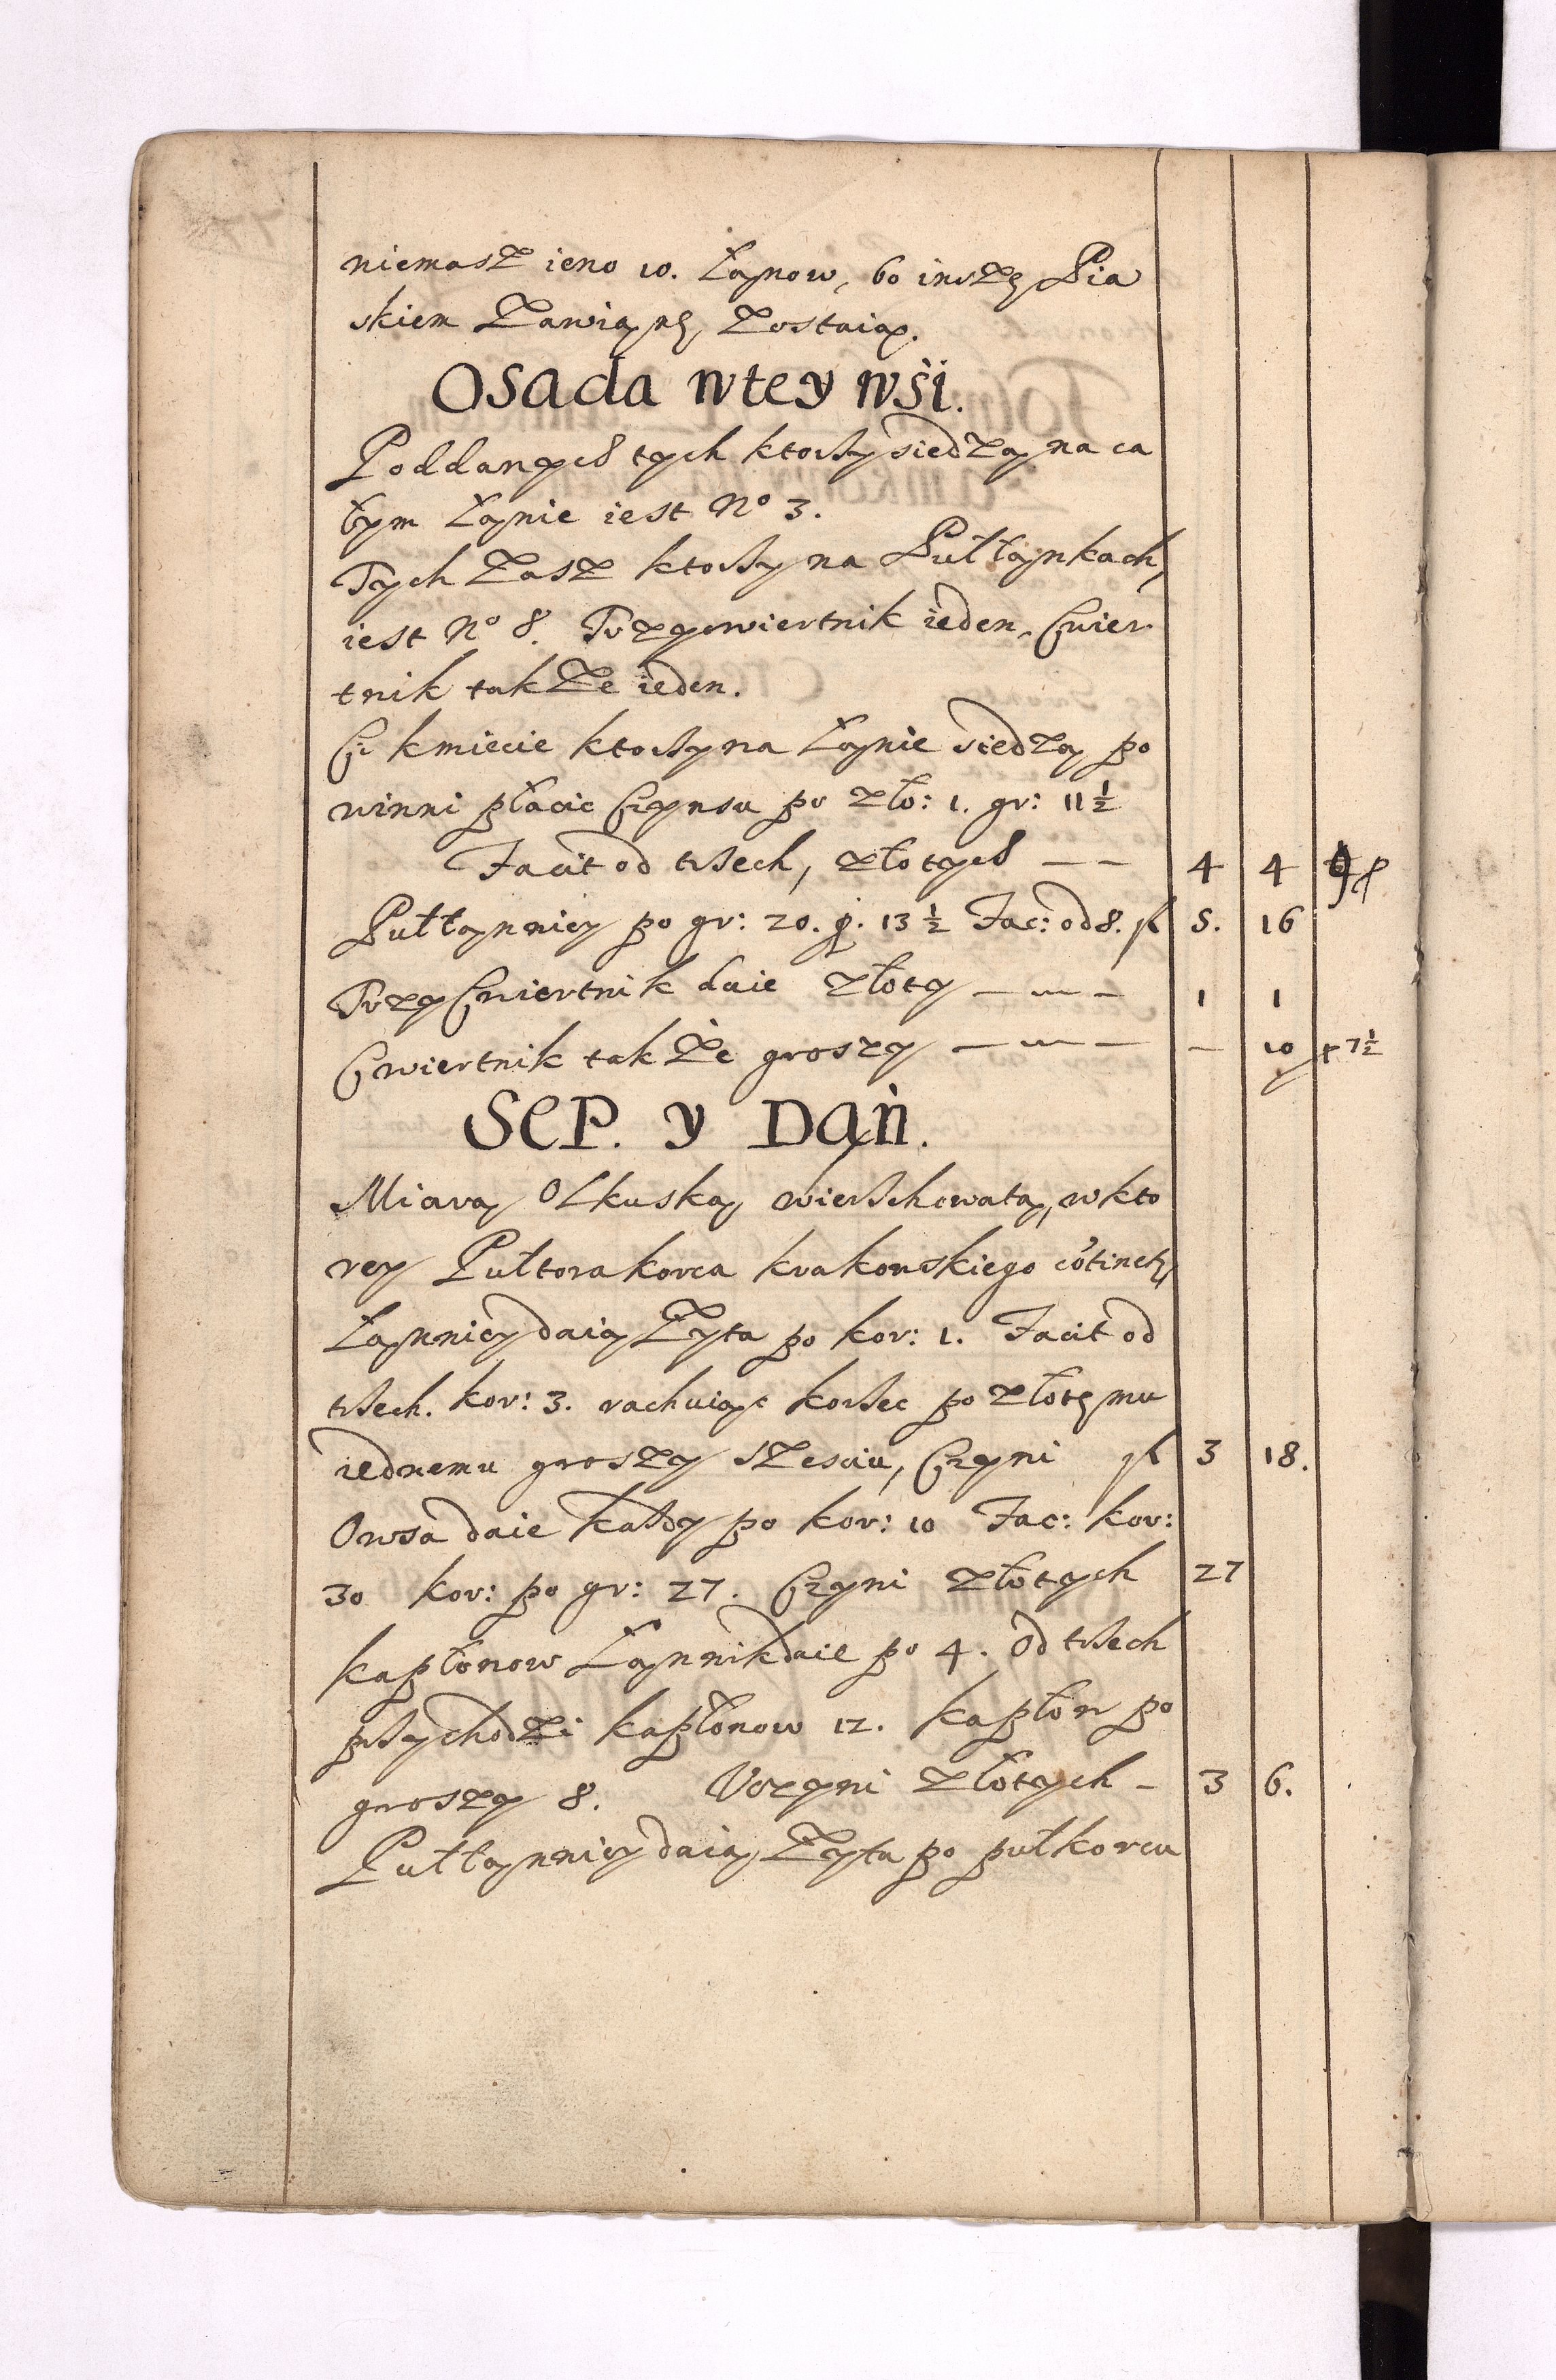 niemasz ieno 10. Łanow, bo inszę Pia
skiem Zawianę, Zostaią.
Osada wtey wśi.
Poddanych tych ktorzy siedzą na ca
łym Łanie iest No 3.
Tych Zasz ktorzy na Pułłankach,
iest No 8. Trzycwiertnik ieden, Cwier
tnik takZe ieden.
Ci kmiecie ktorzy na Łanie siedzą po
winni płacic Czynsu po zło: 1. gr: 11 ½
Facit od trzech, złotych — —
4 4 9
Pułłannicy po gr: 20. 13 ½ Fac: od 8. fl 5. 16
Trzy Cwiertnik daie złoty — — 1 1
Cwiertnik takZe groszy — — — 10 + 7½
Sep. y Dań.
Miara Olkuska wierzchowata, wkto
rey Pułtora korca krakowskiego
Łannicy daią Zyta po kor: 1. Facit od
trzech. kor: 3. rachuiąc korzec po złotemu
iednemu groszy szesciu, Czyni fl 3 18.
Owsa daie kazdy po kor: 10 Fac: kor:
30 kor: po gr: 27. Czyni złotych 27
kapłonow Łannik daie po 4. Od trzech
przychodzi kapłonow 12. kapłon po
groszy 8. Vczyni złotych — 3 6.
Pułłannicy daią Zyta po pułkorcu